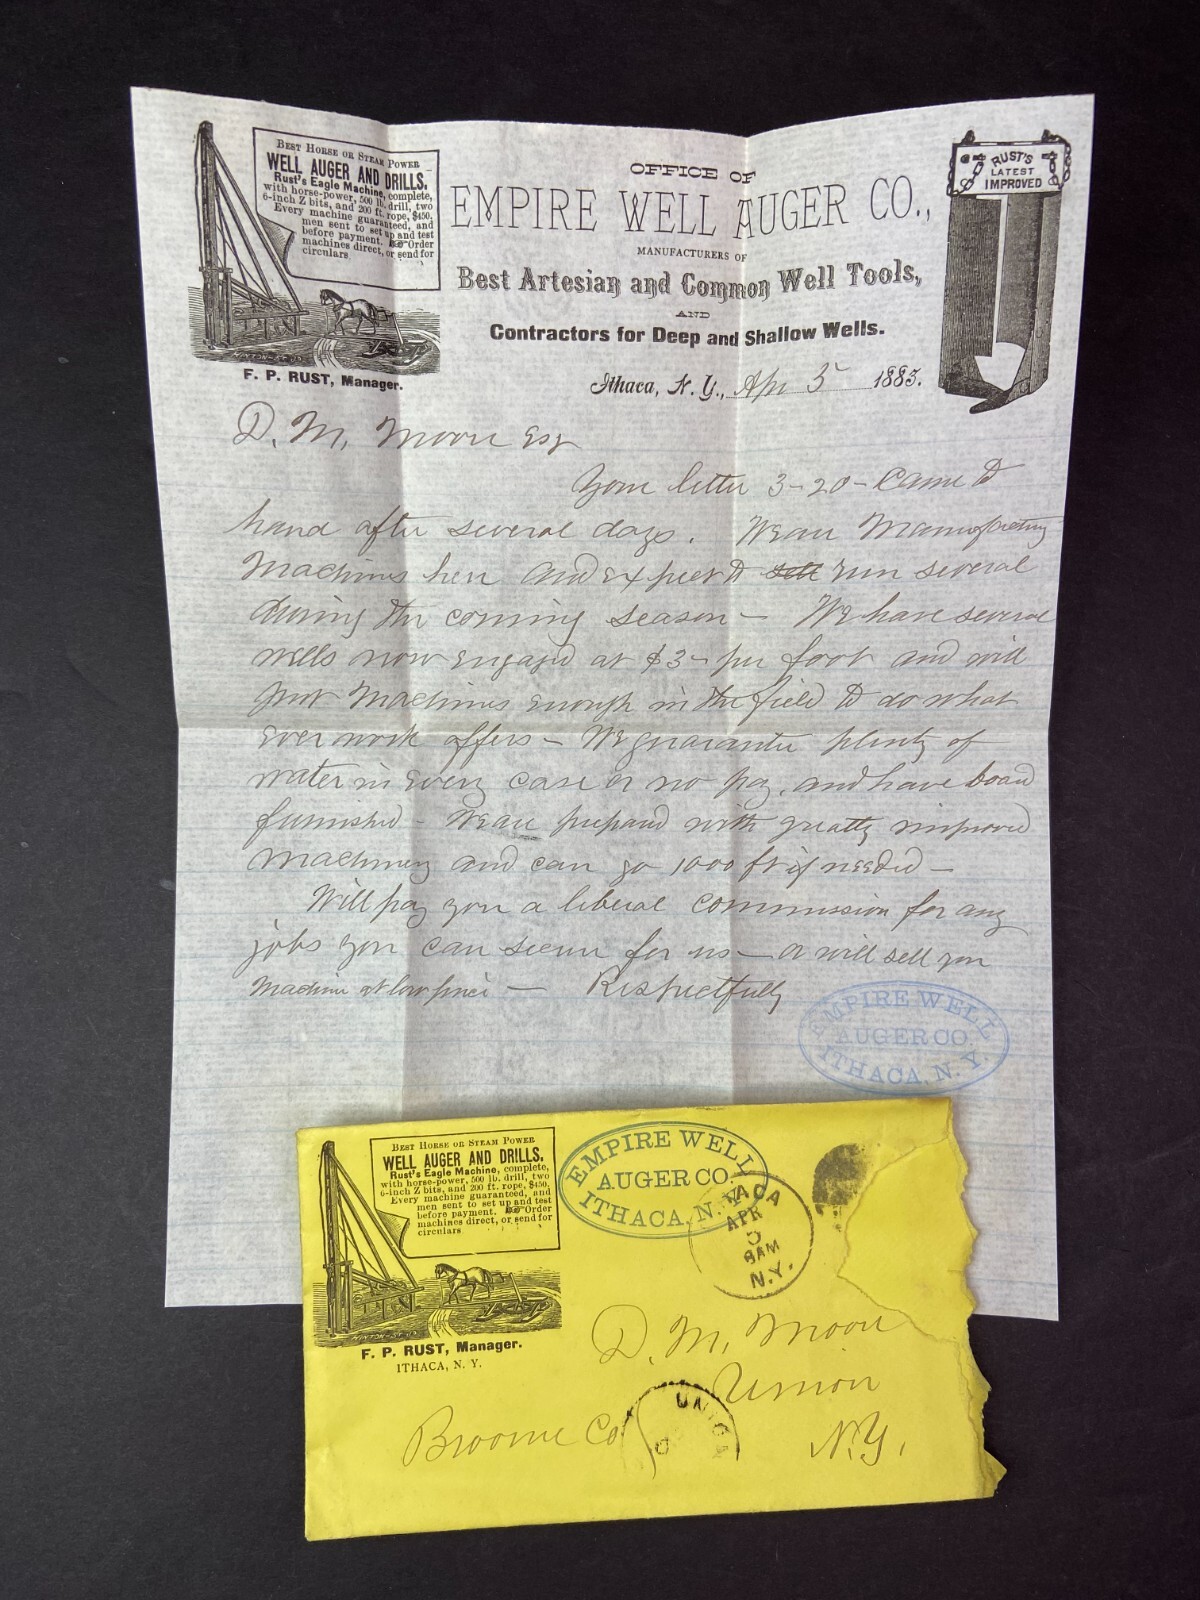 BEST HORSE OR STEAM POWER
WELL AUGER AND DRILLS.
Rust's Eagle Machine, complete,
with horse-power, 500 lb. drill, two
6-inch Z bits, and 200 ft. rope, $450.
Every machine guaranteed, and
men sent to set up and test
before payment. Order
machines direct, or send for
circulars
HINTON-ST. LO
F. P. RUST, Manager.
OFFICE OF
EMPIRE WELL AUGER CO.,
MANUFACTURERS OF
Best Artesian and Common Well Tools,
AND
Contractors for Deep and Shallow Wells.
RUST'S
LATEST
IMPROVED
Ithaca, N. Y., Apr 5 1883.
D. M. Moon Esq
Your letter 3-20- Came to
hand after several days. We are Manufacting
Machines here and expect to sell run several
during the coming season - We have several
wells now engaged at $3- per foot and will
put Machines enough in the field to do what
ever work offers - We guarantee plenty of
water in every case or no pay, and have board
furnished - We are prepared with greatly improved
machinery and can go 1000 ft if needed -
Will pay you a liberal commission for any
jobs you can secure for us - or will sell you
Machine at low price - Respectfully
EMPIRE WELL
AUGER CO.
ITHACA, N. Y.
BEST HORSE OR STEAM POWER
WELL AUGER AND DRILLS.
Rust's Eagle Machine, complete,
with horse-power, 500 lb. drill, two
6-inch Z bits, and 200 ft. rope, $450,
Every machine guaranteed, and
men sent to set up and test
before payment. Order
machines direct, or send for
circulars
HINTON-ST. LO
F. P. RUST, Manager.
ITHACA, N. Y.
EMPIRE WELL
AUGER CO.
ITHACA, N. Y.
ITHACA
APR
5
8AM
N.Y.
D. M. Moon
Union
Broome Co
N.Y.
UNION